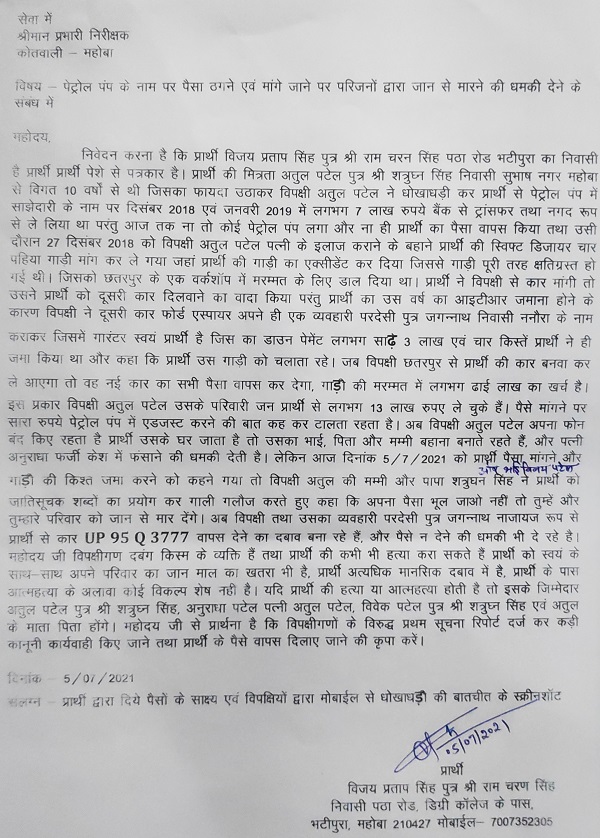 सेवा में
श्रीमान प्रभारी निरीक्षक
कोतवाली – महोबा
विषय – पेट्रोल पंप के नाम पर पैसा ठगने एवं मांगे जाने पर परिजनों द्वारा जान से मारने की धमकी देने के
संबध में
महोदय,
निवेदन करना है कि प्रार्थी विजय प्रताप सिंह पुत्र श्री राम चरन सिंह पठा रोड भटीपुरा का निवासी
है प्रार्थी प्रार्थी पेशे से पत्रकार है। प्रार्थी की मित्रता अतुल पटेल पुत्र श्री शत्रुघ्न सिंह निवासी सुभाष नगर महोबा
से विगत 10 वर्षो से थी जिसका फायदा उठाकर विपक्षी अतुल पटेल ने धोखाधड़ी कर प्रार्थी से पेट्रोल पंप में
साझेदारी के नाम पर दिसंबर 2018 एवं जनवरी 2019 में लगभग 7 लाख रुपये बैंक से ट्रांसफर तथा नगद रूप
से ले लिया था परंतु आज तक ना तो कोई पेट्रोल पंप लगा और ना ही प्रार्थी का पैसा वापस किया तथा उसी
दौरान 27 दिसंबर 2018 को विपक्षी अतुल पटेल पत्नी के इलाज कराने के बहाने प्रार्थी की स्विफ्ट डिजायर चार
पहिया गाड़ी मांग कर ले गया जहां प्रार्थी की गाड़ी का एक्सीडेंट कर दिया जिससे गाड़ी पूरी तरह क्षतिग्रस्त हो
गई थी। जिसको छतरपुर के एक वर्कशॉप में मरम्मत के लिए डाल दिया था। प्रार्थी ने विपक्षी से कार मांगी तो
उसने प्रार्थी को दूसरी कार दिलवाने का वादा किया परंतु प्रार्थी का उस वर्ष का आइटीआर जमाना होने के
कारण विपक्षी ने दूसरी कार फोर्ड एस्पायर अपने ही एक व्यवहारी परदेसी पुत्र जगन्नाथ निवासी ननौरा के नाम
कराकर जिसमें गारंटर स्वयं प्रार्थी है जिस का डाउन पेमेंट लगभग साढ़े 3 लाख एवं चार किस्तें प्रार्थी ने ही
जमा किया था और कहा कि प्रार्थी उस गाड़ी को चलाता रहे। जब विपक्षी छतरपुर से प्रार्थी की कार बनवा कर
ले आएगा तो वह नई कार का सभी पैसा वापस कर देगा, गाड़ी की मरम्मत में लगभग ढाई लाख का खर्च है।
इस प्रकार विपक्षी अतुल पटेल उसके परिवारी जन प्रार्थी से लगभग 13 लाख रुपए ले चुके हैं। पैसे मांगने पर
सारा रुपये पेट्रोल पंप में एडजस्ट करने की बात कह कर टालता रहता है। अब विपक्षी अतुल पटेल अपना फोन
बंद किए रहता है प्रार्थी उसके घर जाता है तो उसका भाई, पिता और मम्मी बहाना बनाते रहते हैं, और पत्नी
अनुराधा फर्जी केश में फंसाने की धमकी देती है। लेकिन आज दिनांक 5/7/2021 को प्रार्थी पैसा मांगने और
भाई विनय पटेल
गाड़ी की किश्त जमा करने को कहने गया तो विपक्षी अतुल की मम्मी और पापा शत्रुघन सिंह ने प्रार्थी को
जातिसूचक शब्दों का प्रयोग कर गाली गलौज करते हुए कहा कि अपना पैसा भूल जाओ नहीं तो तुम्हे और
तुम्हारे परिवार को जान से मार देंगे। अब विपक्षी तथा उसका व्यवहारी परदेसी पुत्र जगन्नाथ नाजायज रूप से
प्रार्थी से कार UP 95 Q 3777 वापस देने का दबाव बना रहे हैं, और पैसे न देने की धमकी भी दे रहे है।
महोदय जी विपक्षीगण दबंग किस्म के व्यक्ति हैं तथा प्रार्थी की कभी भी हत्या करा सकते हैं प्रार्थी को स्वयं के
साथ-साथ अपने परिवार का जान माल का खतरा भी है, प्रार्थी अत्यधिक मानसिक दबाव में है, प्रार्थी के पास
आत्महत्या के अलावा कोई विकल्प शेष नही है। यदि प्रार्थी की हत्या या आत्महत्या होती है तो इसके जिम्मेदार
अतुल पटेल पुत्र श्री शत्रुघ्न सिंह, अनुराधा पटेल पत्नी अतुल पटेल, विवेक पटेल पुत्र श्री शत्रुघ्न सिंह एवं अतुल
के माता पिता होंगे। महोदय जी से प्रार्थना है कि विपक्षीगणों के विरुद्ध प्रथम सूचना रिपोर्ट दर्ज कर कड़ी
कानूनी कार्यवाही किए जाने तथा प्रार्थी के पैसे वापस दिलाए जाने की कृपा करें।
दिनांक – 5/07/2021
सलग्न – प्रार्थी द्वारा दिये पैसों के साक्ष्य एवं विपक्षियों द्वारा मोबाईल से धोखाधड़ी की बातचीत के स्क्रीनशॉट
05/07/2021
प्रार्थी
विजय प्रताप सिंह पुत्र श्री राम चरण सिंह
निवासी पठा रोड, डिग्री कॉलेज के पास,
भटीपुरा, महोबा 210427 मोबाईल– 7007352305